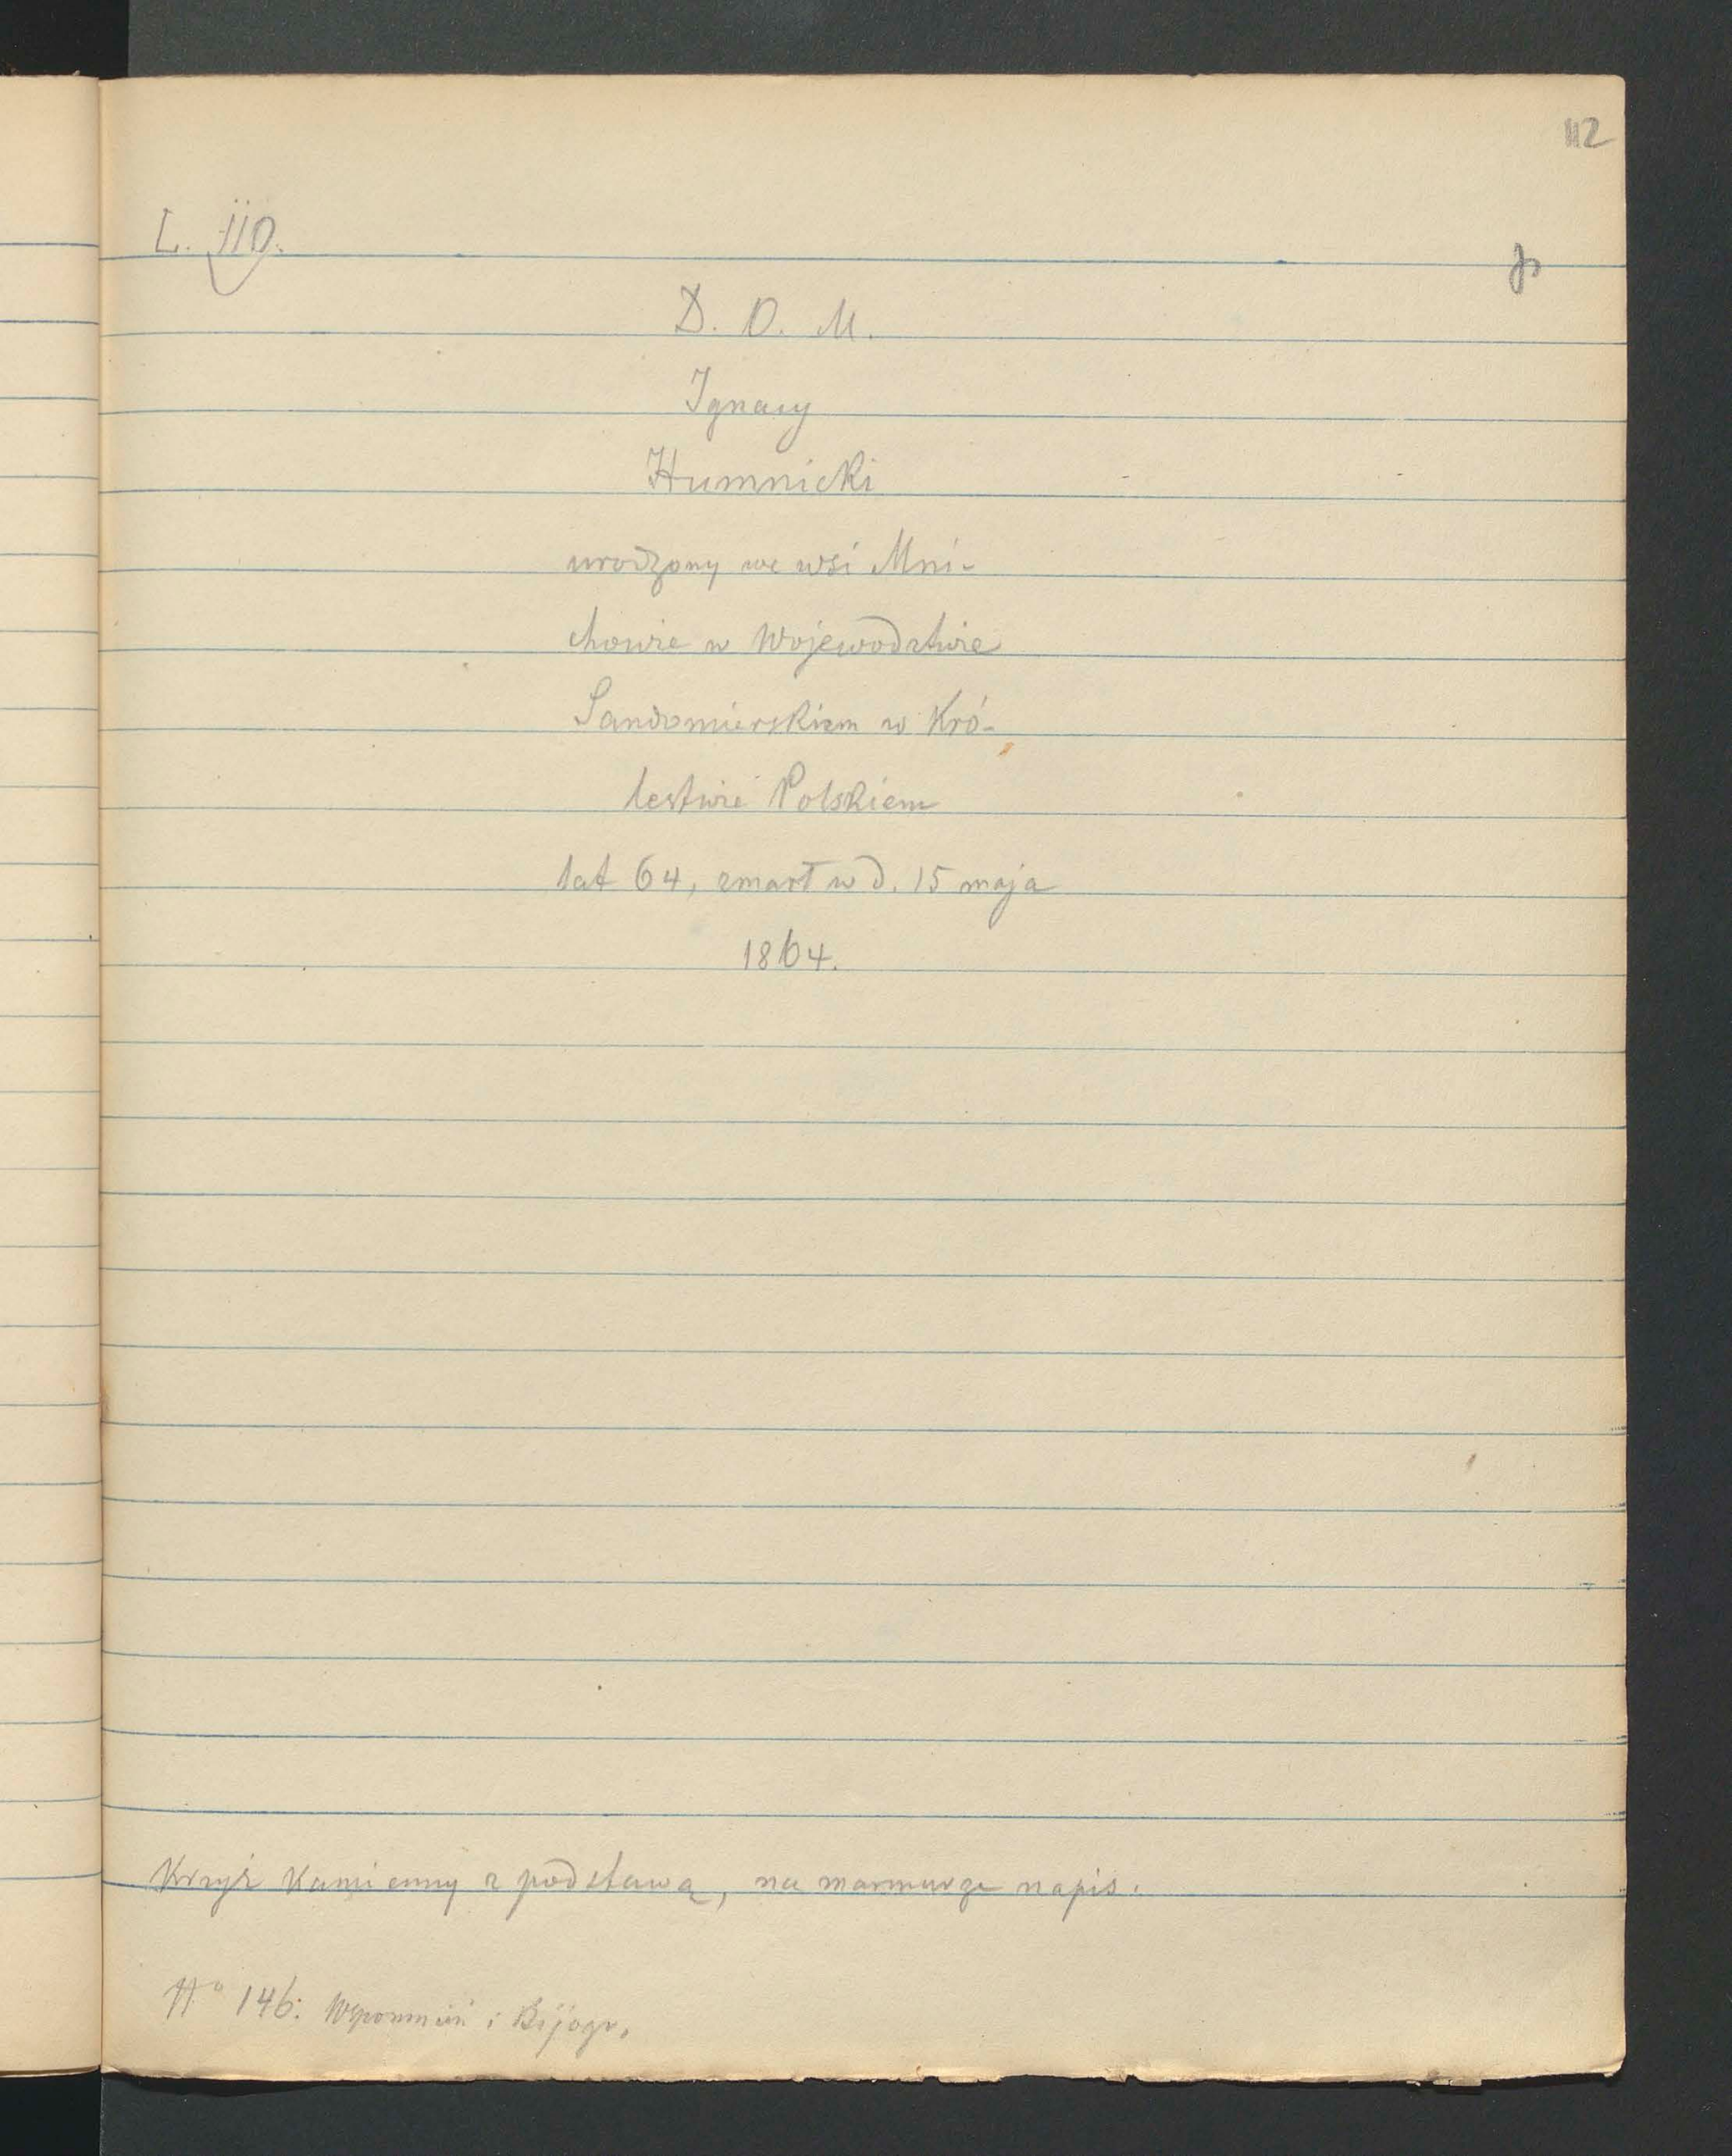 112
L. 110.
D. O. M.
Ignacy
Humnicki
urodzony we wsi Mni-
chowie w Województwie
Sandomierskiem w Kró-
lestwie Polskiem
lat 64, zmarł w d. 15 maja
1864.
Krzyż kamienny z podstawą, na marmurze napis.
No 146. Wspomnień i Bijogr.